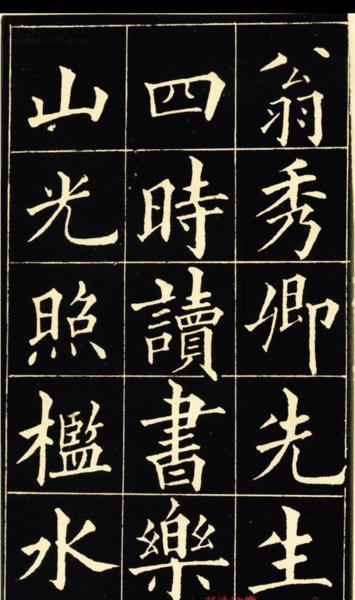 翁秀卿先生
四時讀書樂
山光照檻水